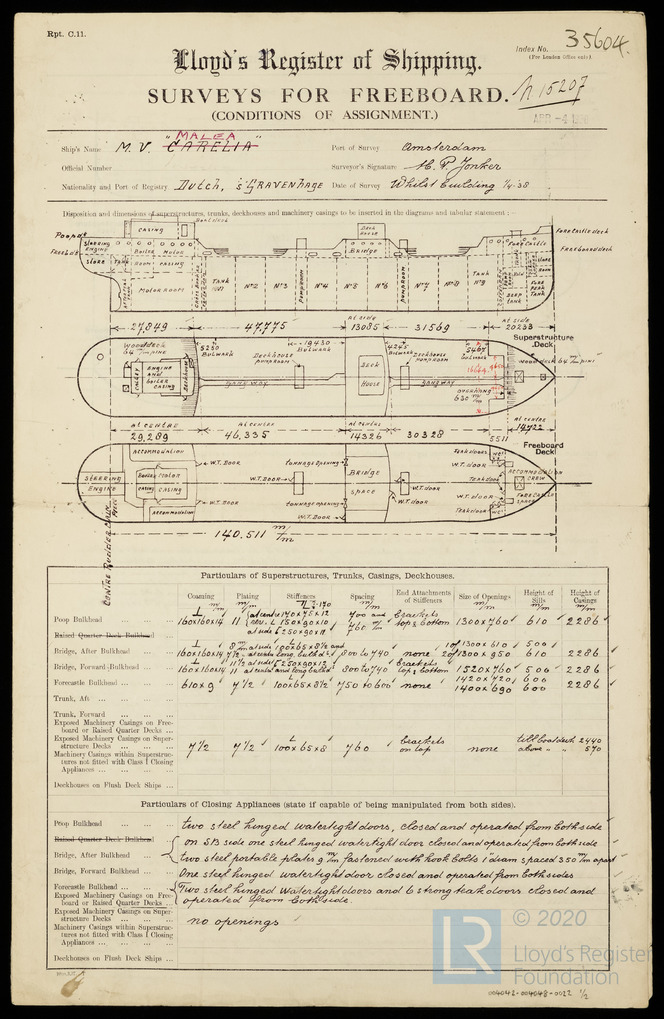 Rpt. C.11.
Index No. 35604.
(For London Office only.)
Lloyd's Register of Shipping.
SURVEYS FOR FREEBOARD.
N 15207
(CONDITIONS OF ASSIGNMENT.)
MALEA
Ship's Name M.V. "CARELIA" Port of Survey Amsterdam
Official Number Surveyor's Signature H. P. Jonker
Nationality and Port of Registry Dutch, s'GRAVENHAGE Date of Survey Whilst building 1/4-38
Disposition and dimensions of superstructures, trunks, deckhouses and machinery casings to be inserted in the diagrams and tabular statement :—
CASING
Deck House
Poopdk
Forecastle deck
STEERING ENGINE
BOILER ROOM
Bridge
ForeCastle
Freeboard deck
STORE
MOTOR ROOM
TANK No1 No2 No3 PUMPROOM No4 No5 No6 PUMPROOM No7 No8 TANK No9
DEEP TANK
FORE PEAK TANK
At side At side
27,849 47,775 13085 31569 20233
Superstructure Deck.
Wooddeck 64 m/m pine
5230 Bulwark
19430 Bulwark
4245 Bulwark
5467
Deckhouse PUMPROOM
Deckhouse PUMPROOM
ENGINE and boiler CASING
DECKHOUSE
GANGWAY
DECK House
GANGWAY
630 m/m
At centre At centre At centre At centre
29,289 46,335 14326 30328 5511 14722
Freeboard Deck
ACCOMMODATION
W.T. DOOR
TONNAGE OPENING
Teakdoor
W.T. DOOR
STEERING ENGINE
CASING
W.T. DOOR
Bridge space
W.T. DOOR
Teakdoor
ACCOMMODATION CREW
W.T. DOOR
TONNAGE OPENING
W.T. door
W.T. door
ForeCastle SPACE
ACCOMMODATION
W.T. DOOR
Teakdoor
140.511 m/m
Particulars of Superstructures, Trunks, Casings, Deckhouses.
Coaming Plating Stiffeners Spacing End Attachments of Stiffeners Size of Openings Height of Sills Height of Casings
m/m m/m m/m m/m m/m m/m
Poop Bulkhead 160x160x14 11 at centre 140x75x12 700 and brackets
760 m/m top & bottom 1300x760 610 2286
at side 250x90x11
Raised Quarter Deck Bulkhead
Bridge, After Bulkhead 160x160x14 800 to 740 none 1300x610 500
1300x950 610 2286
Bridge, Forward Bulkhead 160x160x14 11 800 to 740 brackets top & bottom 1520x760 500 2286
Forecastle Bulkhead 610x9 7½ 100x65x8½ 750 to 600 none 1420x720 600
1400x690 600 2286
Trunk, Aft
Trunk, Forward
Exposed Machinery Casings on Free-
board or Raised Quarter Decks
Exposed Machinery Casings on Super-
structure Decks 7½ 7½ 100x65x8 760 brackets on top none till boatdeck 2440
above " " 570
Machinery Casings within Superstruc-
tures not fitted with Class I Closing
Appliances
Deckhouses on Flush Deck Ships
Particulars of Closing Appliances (state if capable of being manipulated from both sides).
Poop Bulkhead two steel hinged watertight doors, closed and operated from both side
Raised Quarter Deck Bulkhead on SB side one steel hinged watertight door closed and operated from both side
Bridge, After Bulkhead two steel portable plates 9 m/m fastened with hook bolts 1 diam spaced 350 m/m apart
Bridge, Forward Bulkhead One steel hinged watertight door closed and operated from both sides
Forecastle Bulkhead Two steel hinged watertight doors and 6 strong teak doors closed and
Exposed Machinery Casings on Free-
board or Raised Quarter Decks operated from both side.
Exposed Machinery Casings on Super-
structure Decks no openings
Machinery Casings within Superstruc-
tures not fitted with Class I Closing
Appliances
Deckhouses on Flush Deck Ships
LR © 2020
Lloyd's Register
Foundation
004042-004048-0022 ½